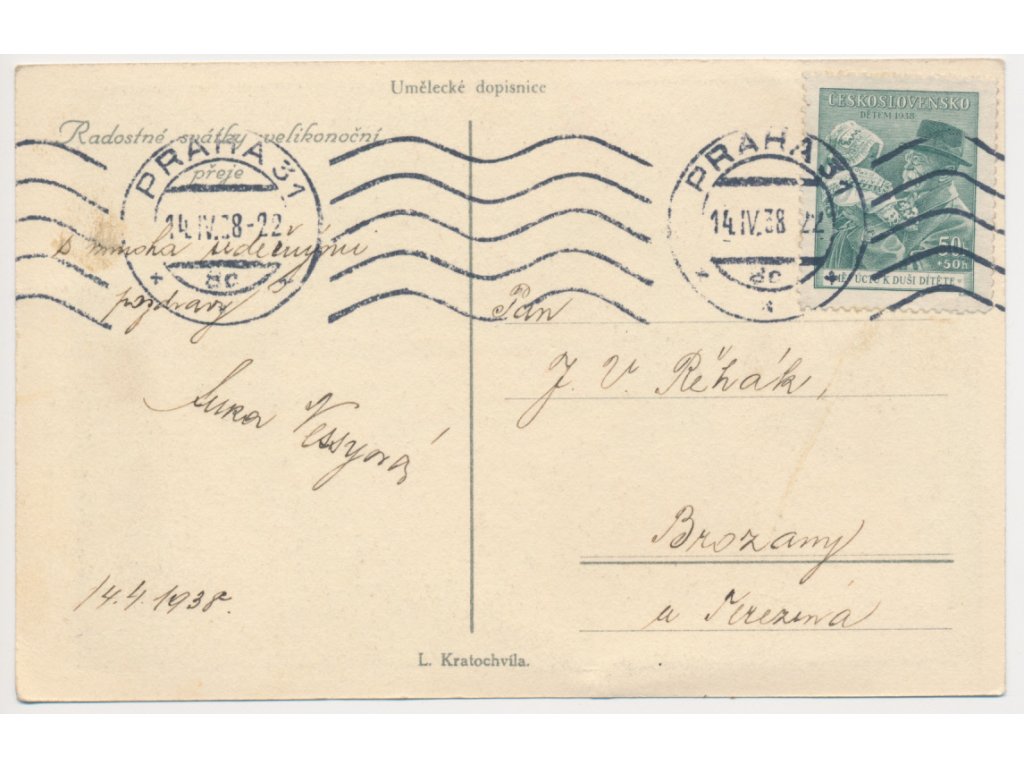 Umělecké dopisnice
Radostné svátky velikonoční
přeje
s mnoha srdečnými
pozdravy
Vessyová
14.4.1938.
L. Kratochvíla.
PRAHA 31
14.IV.38-22
8c
PRAHA 31
14.IV.38 22
8c
ČESKOSLOVENSKO
DĚTEM 1938
50h
+50h
ÚCTU K DUŠI DÍTĚTE
Pán
J. V. Řehák,
Brozany
u Terezína